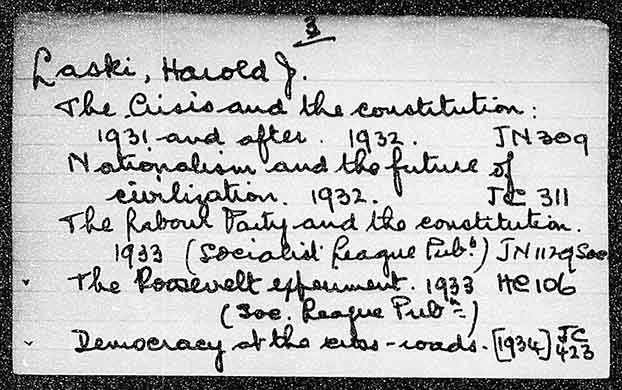 3
Laski, Harold J.
The Crisis and the constitution:
1931 and after. 1932. JN309
Nationalism and the future of
civilization. 1932. JC 311
The Labour Party and the constitution.
1933 (Socialist League Pubⁿ) JN1129Soc
The Roosevelt experiment. 1933 HC106
(Soc. League Pubⁿ)
Democracy at the cross-roads. [1934] JC
423